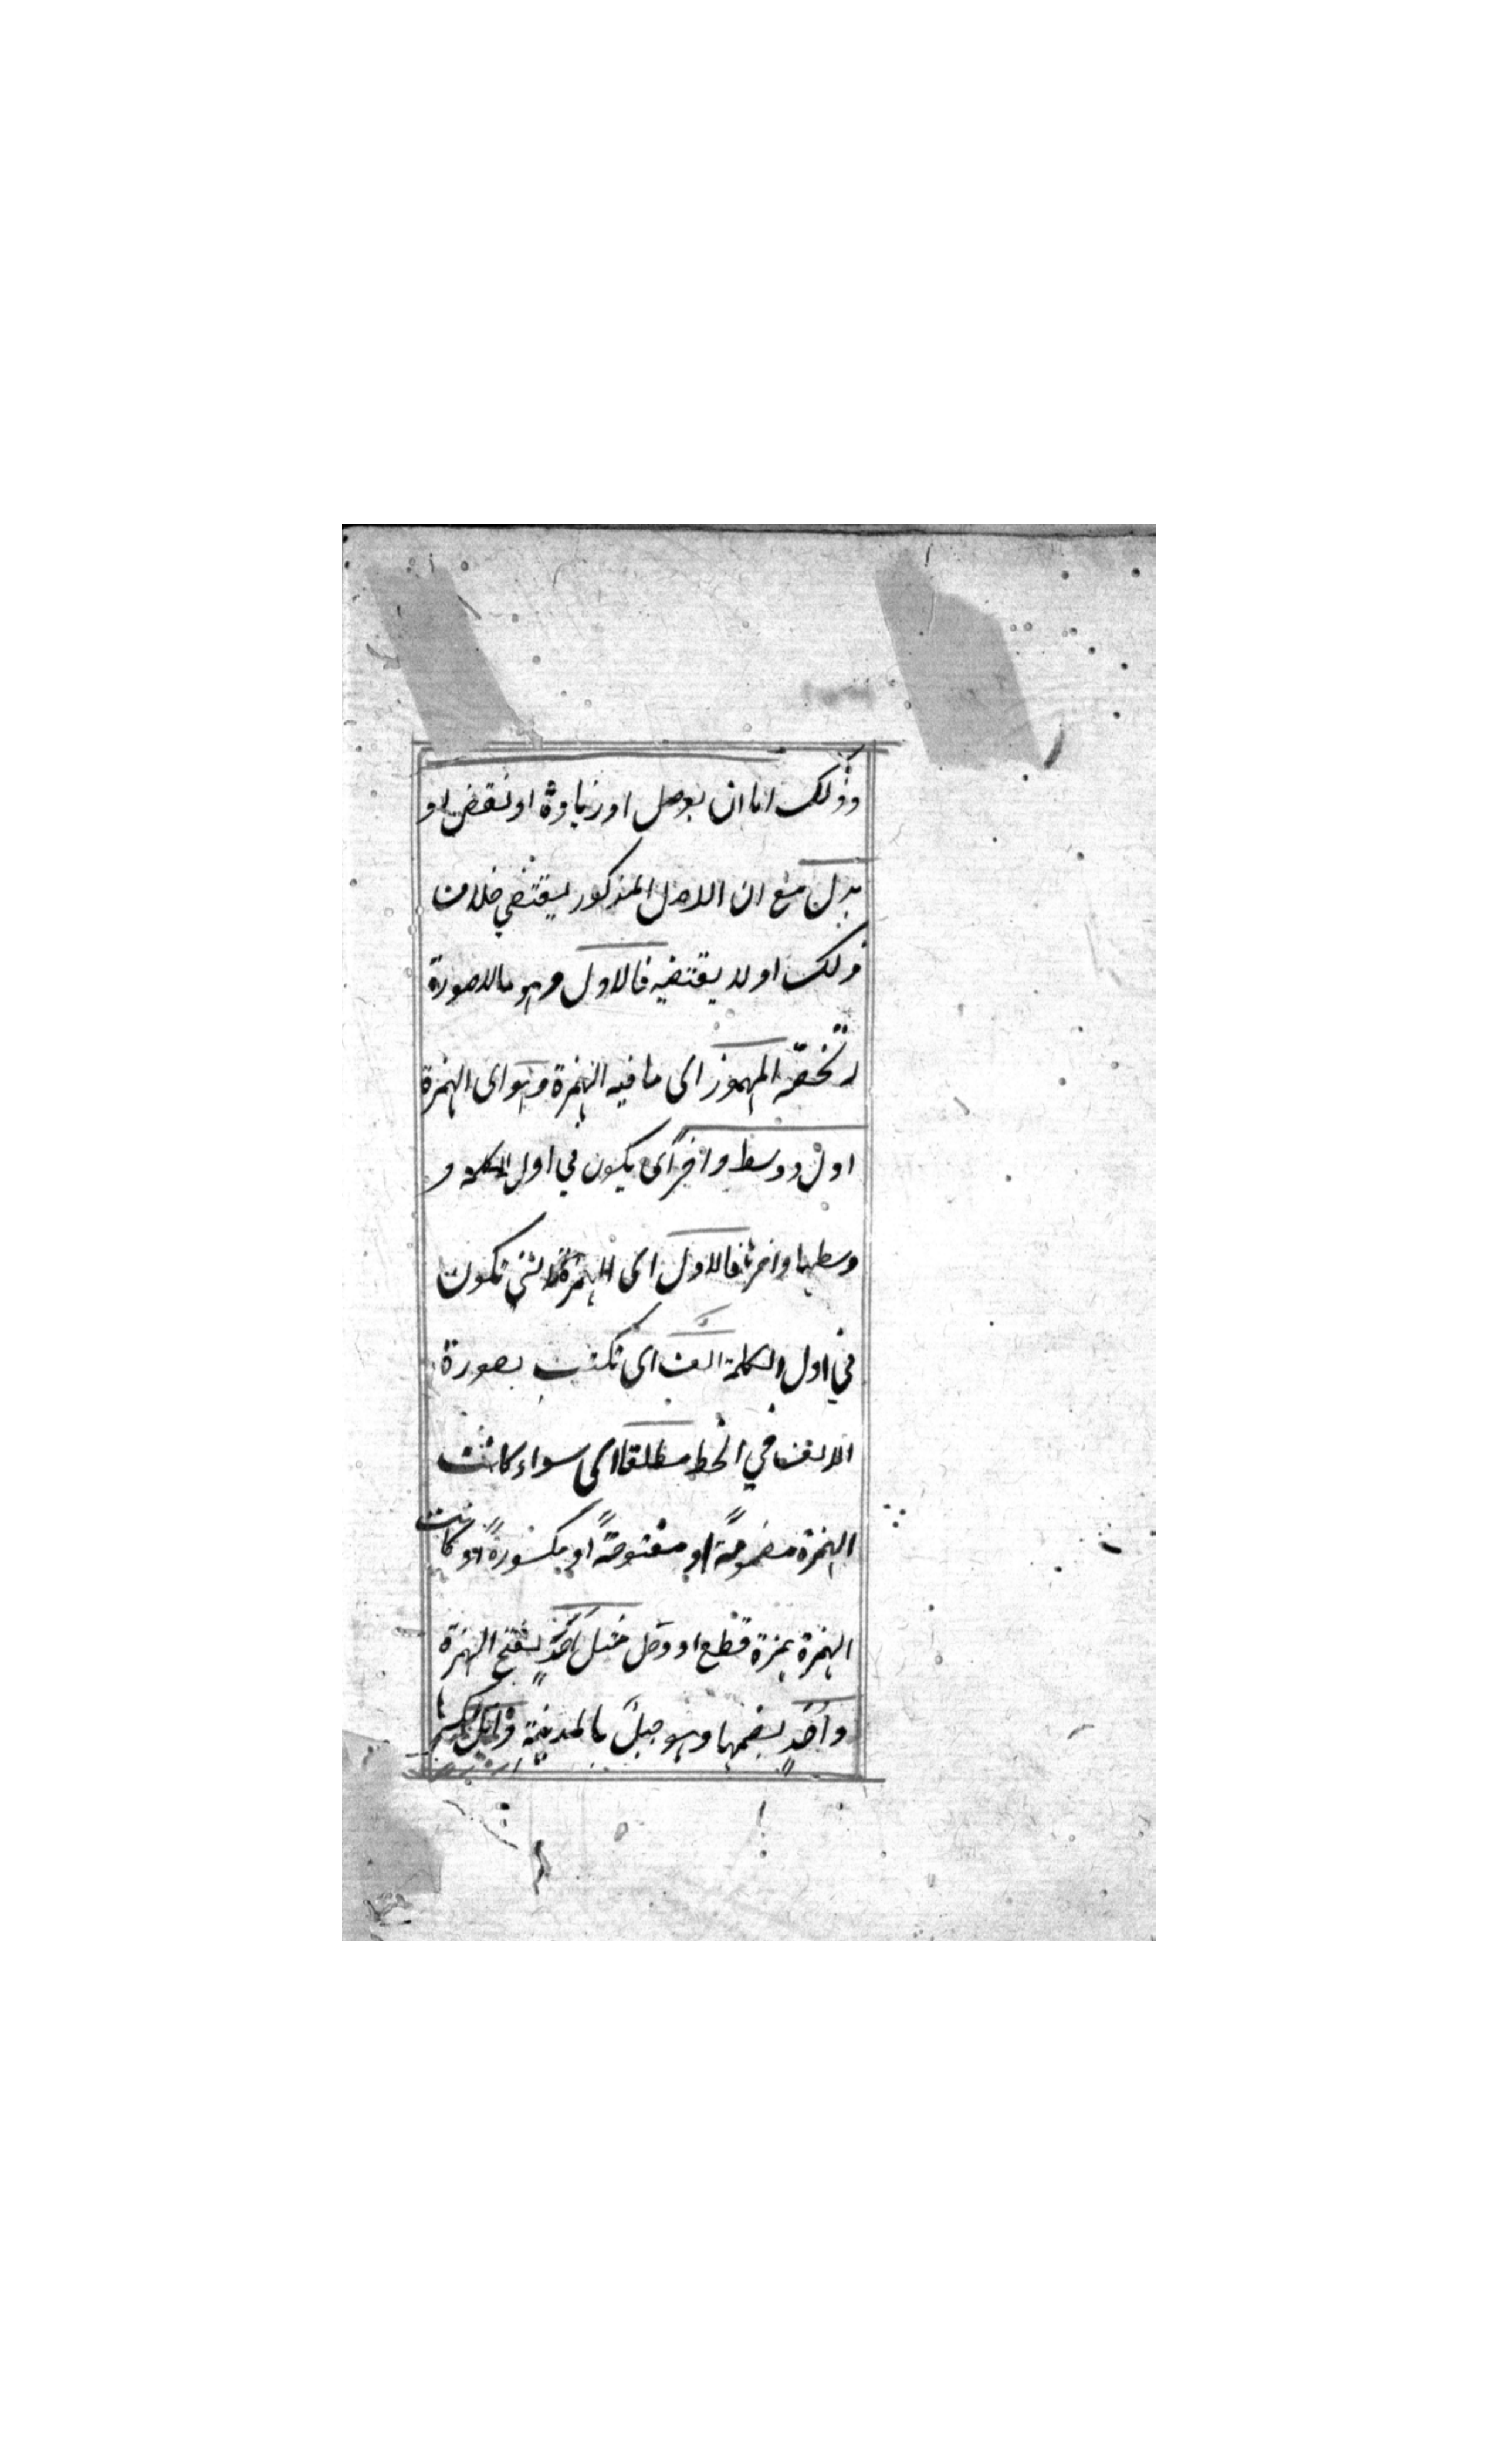 وذلك اما ان بوصل او زيادة او نقص او
بدل مع ان الاصل المذكور يقتضي خلاف
ذلك او لا يقتضيه فالاول وهو ما لا صورة
له تخصه المهموز اى ما فيه الهمزة وهو اى الهمزة
اول ووسط واخر اى يكون في اول الكلمة و
وسطها واخرها فالاول اى الهمزة التي تكون
في اول الكلمة الف اى تكتب بصورة
الالف في الخط مطلقا اى سواء كانت
الهمزة مضمومةً او مفتوحةً او مكسورةً او كانت
الهمزة همزة قطع او وصل مثل اَحَدٍ بفتح الهمزة
واُحُدٍ بضمها وهو جبل بالمدينة